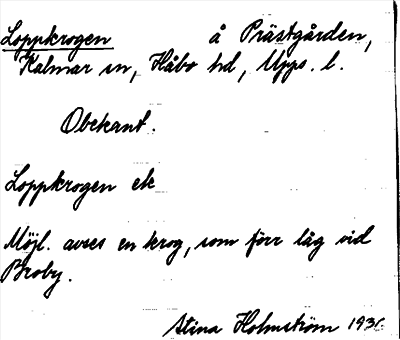 Loppkrogen å Prästgården,
Kalmar sn, Håbo hd, Upps. l.
Obekant.
Loppkrogen ek
Möjl. avses en krog, som förr låg vid
Broby.
Stina Holmström 193